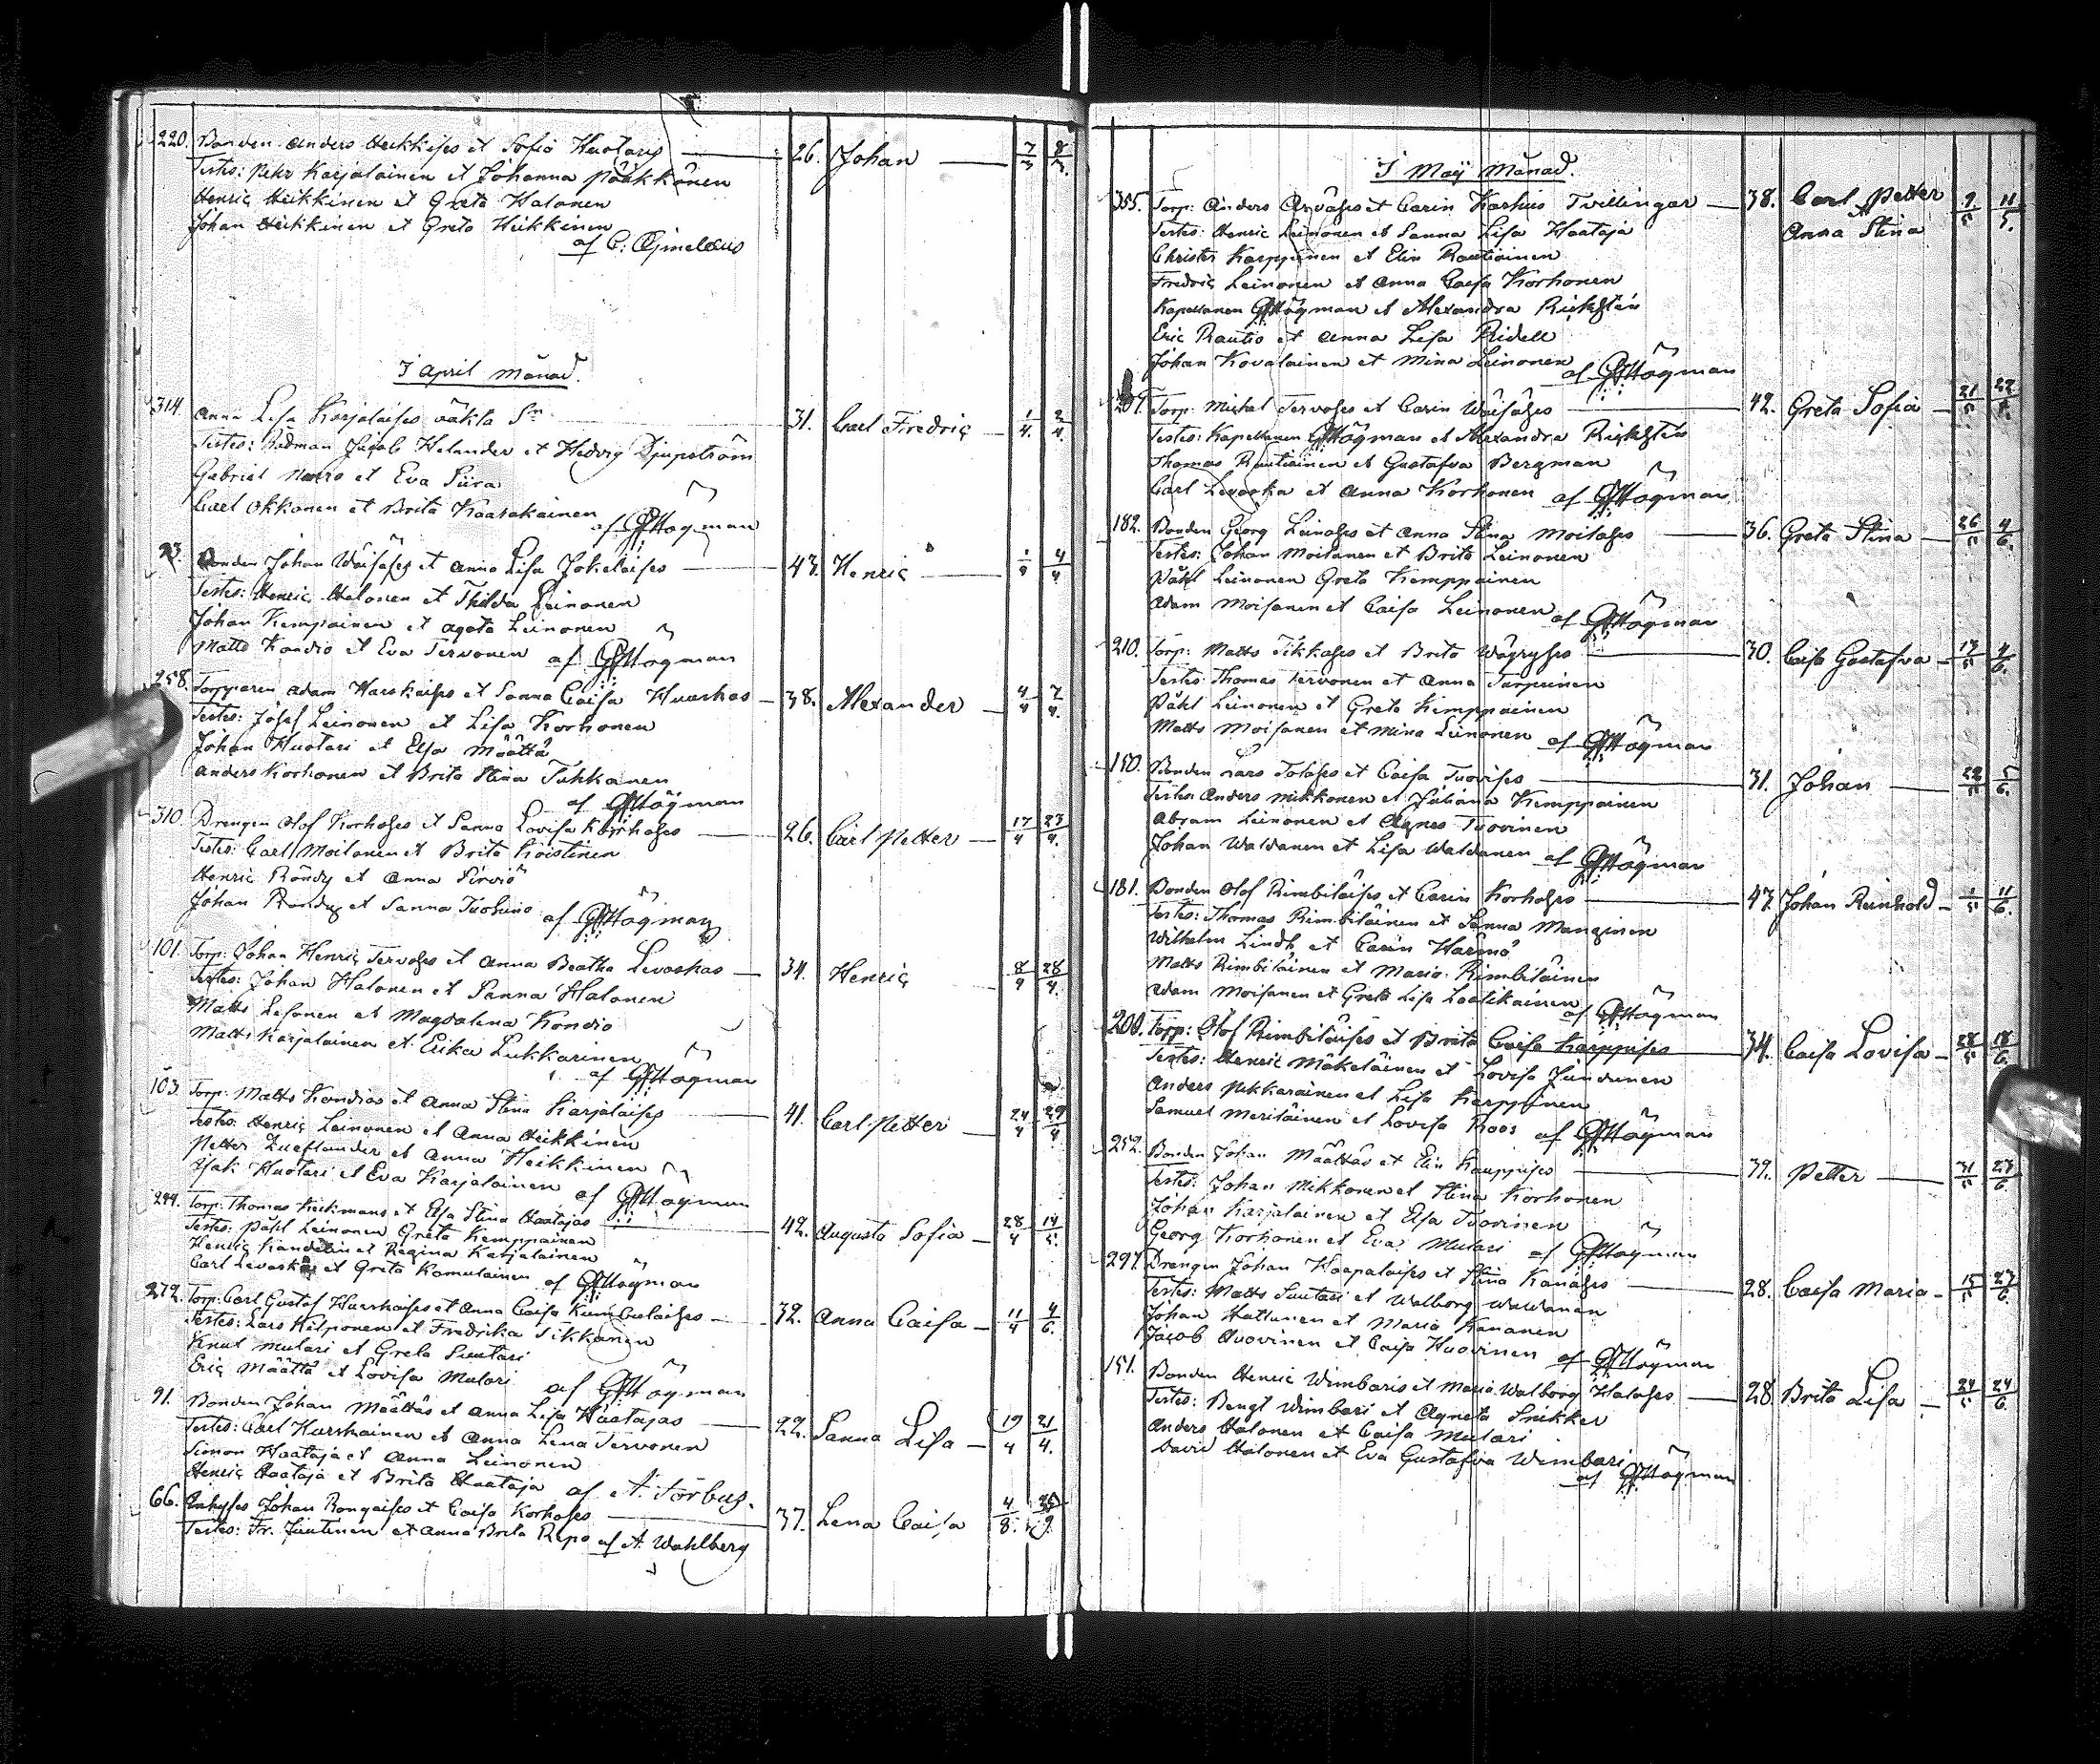 220. Bonden Anders Heikkises et Sofia Huotaris — 26. Johan — 7/3 8/3.
Testes: Petr Karjalainen et Johanna Pääkkönen
Henric Heikkinen et Greta Halonen
Johan Heikkinen et Greta Heikkinen
af C:
I April månad.
314. Anna Lisa Karjalaises oäkta Sn 31. Carl Fredric 1/4. 2/4.
Testes: Rådman Jacob Helander et Hedvig Djupström
Gabriel et Eva Siira
Carl Okkonen et Brita Kaarakainen
af GHögman
23. Bonden Johan Wäisäses et Anna Lisa Jokelaises — 43. Henric — 1/4 4/4
Testes: Henric Halonen et Thilda Leinonen
Johan Kempainen et Agata Leinonen
Matts Kondio et Eva Tervonen af GHögman
258. Torpparen Adam Harskaises et Sanna Caisa Huurskas — 38. Alexander — 4/4 7/4.
Testes: Josef Leinonen et Lisa Korhonen
Johan Huotari et Elsa Määttä
Anders Korhonen et Brita Stina Tukkanen
af GHögman
310 Drengen Olof Korhoses et Sanna Lovisa Korhoses — 26. Carl Petter — 17/4 23/4.
Testes: Carl Moilanen et Brita Koistinen
Henric Röndy et Anna Sirviö
Johan Röndy et Sanna af GHögman
101. Torp: Johan Henric Tervoses et Anna Beatha Levoskas — 34. Henric 8/4 28/4.
Testes: Johan Halonen et Sanna Halonen
Matts Lesonen et Magdalena Kondio
Matts Karjalainen et Erika Lukkarinen
af GHögman
103. Torp: Matts Kondios et Anna Stina Karjalaises — 41. Carl Petter — 24/4 29/4
Testes: Henric Leinonen et Anna Heikkinen
Petter et Anna Heikkinen
Isak Huotari et Eva Karjalainen af GHögman
294. Torp: Thomas Keikmans et Elsa Stina Haatajas — 42. Augusta Sofia — 28/4 14/5.
Testes: Påhl Leinonen Greta Kemppainen
Henric et Regina Karjalainen
Carl Levoska et Greta Komulainen af GHögman
272. Torp: Carl Gustaf Hurskaises et Anna Caisa — 32. Anna Caisa — 11/4 4/6.
Testes: Lars Kilponen et Fredrika Tikkanen
Knut Mulari et Greta Suutari
Eric Määttä et Lovisa Mulari af GHögman
91. Bonden Johan Määttäs et Anna Lisa Haatajas — 22. Sanna Lisa — 19/4 21/4.
Testes: Carl Hurskainen et Anna Lena Tervonen
Simon Haataja et Anna Leinonen
Henric Haataja et Brita Haataja af A. Forbus.
66. Johan Rongaises et Caisa Korhoses — 37. Lena Caisa 4/8.
Testes: Fr. Juntunen et Anna Brita Repo af A. Wahlberg
I Maij månad.
355. Torp: Anders Arvåses et Carin Karhus Tvillingar — 38. Carl Petter 9/5 11/5.
et
Anna Stina
Testes: Henric Leinonen et Sanna Lisa Haataja
Christer Karppinen et Elin Rautiainen
Fredric Leinonen et Anna Caisa Korhonen
Kapellanen GHögman et Alexandra
Eric Rautio et Anna Lisa Ridell
Johan Kovalainen et Mina Leinonen af GHögman
Torp: Michel Tervoses et Carin Wäisäses — 42. Greta Sofia — 21/5 22/5.
Testes: Kapellanen GHögman et Alexandra
Thomas Rautiainen et Gustafva Bergman
Carl Levoska et Anna Korhonen af GHögman
182. Bonden Georg Leinoses et Anna Stina Moilases — 36. Greta Stina — 26/5 4/6.
Testes: Johan Moilanen et Brita Leinonen
Påhl Leinonen Greta Kemppainen
Adam Moisanen et Caisa Leinonen af GHögman
210. Torp: Matts Tikkases et Brita Wäyryses — 30. Caisa Gustafva — 4/6.
Testes: Thomas Tervonen et Anna Turpeinen
Påhl Leinonen et Greta Kemppainen
Matts Moisanen et Mina Leinonen af GHögman
150. Bonden Lars Tolases et Caisa Tuovises — 31. Johan — 22/5 5/6.
Testes Anders Mikkonen et Juliana Kemppainen
Abram Leinonen et Agnes Tuovinen
Johan Waldanen et Lisa Waldanen af GHögman
181. Bonden Olof Rimbiläises et Carin Korhoses — 47. Johan Reinhold — 1/5 11/6.
Testes: Thomas Rimbiläinen et Sanna Manginen
Wilhelm Lindh et Carin Härmä
Matts Rimbiläinen et Maria Rimbiläinen
Adam Moisanen et Greta Lisa Laatikainen
af GHögman
200. Torp: Olof Rimbiläises et Brita Caisa Karppises — 34. Caisa Lovisa — 28/5 18/6
Testes: Henric Mäkeläinen et Lovisa Juntunen
Anders Pekkarainen et Lisa Karppinen
Samuel Meriläinen et Lovisa Roos af GHögman
252. Bonden Johan Määttäs et Elin Kauppises — 39. Petter — 31/5 23/6.
Testes: Johan Mikkonen et Stina Korhonen
Johan Karjalainen et Elsa Tuovinen
Georg Korhonen et Eva Mulari af GHögman
297. Drengen Johan Haapalaises et Stina Kanases — 28. Caisa Maria — 15/5 27/6.
Testes: Matts Suutari et Walborg Waldanen
Johan Hattunen et Maria Kananen
Jacob Huovinen et Caisa Huovinen af GHögman
151. Bonden Henric Wimbaris et Maria Walborg Haloses — 28. Brita Lisa — 24/5 24/6
Testes: Bengt Wimbari et Agneta Snikker
Anders Halonen et Caisa Mulari
David Halonen et Eva Gustafva Wimbari
af GHögman